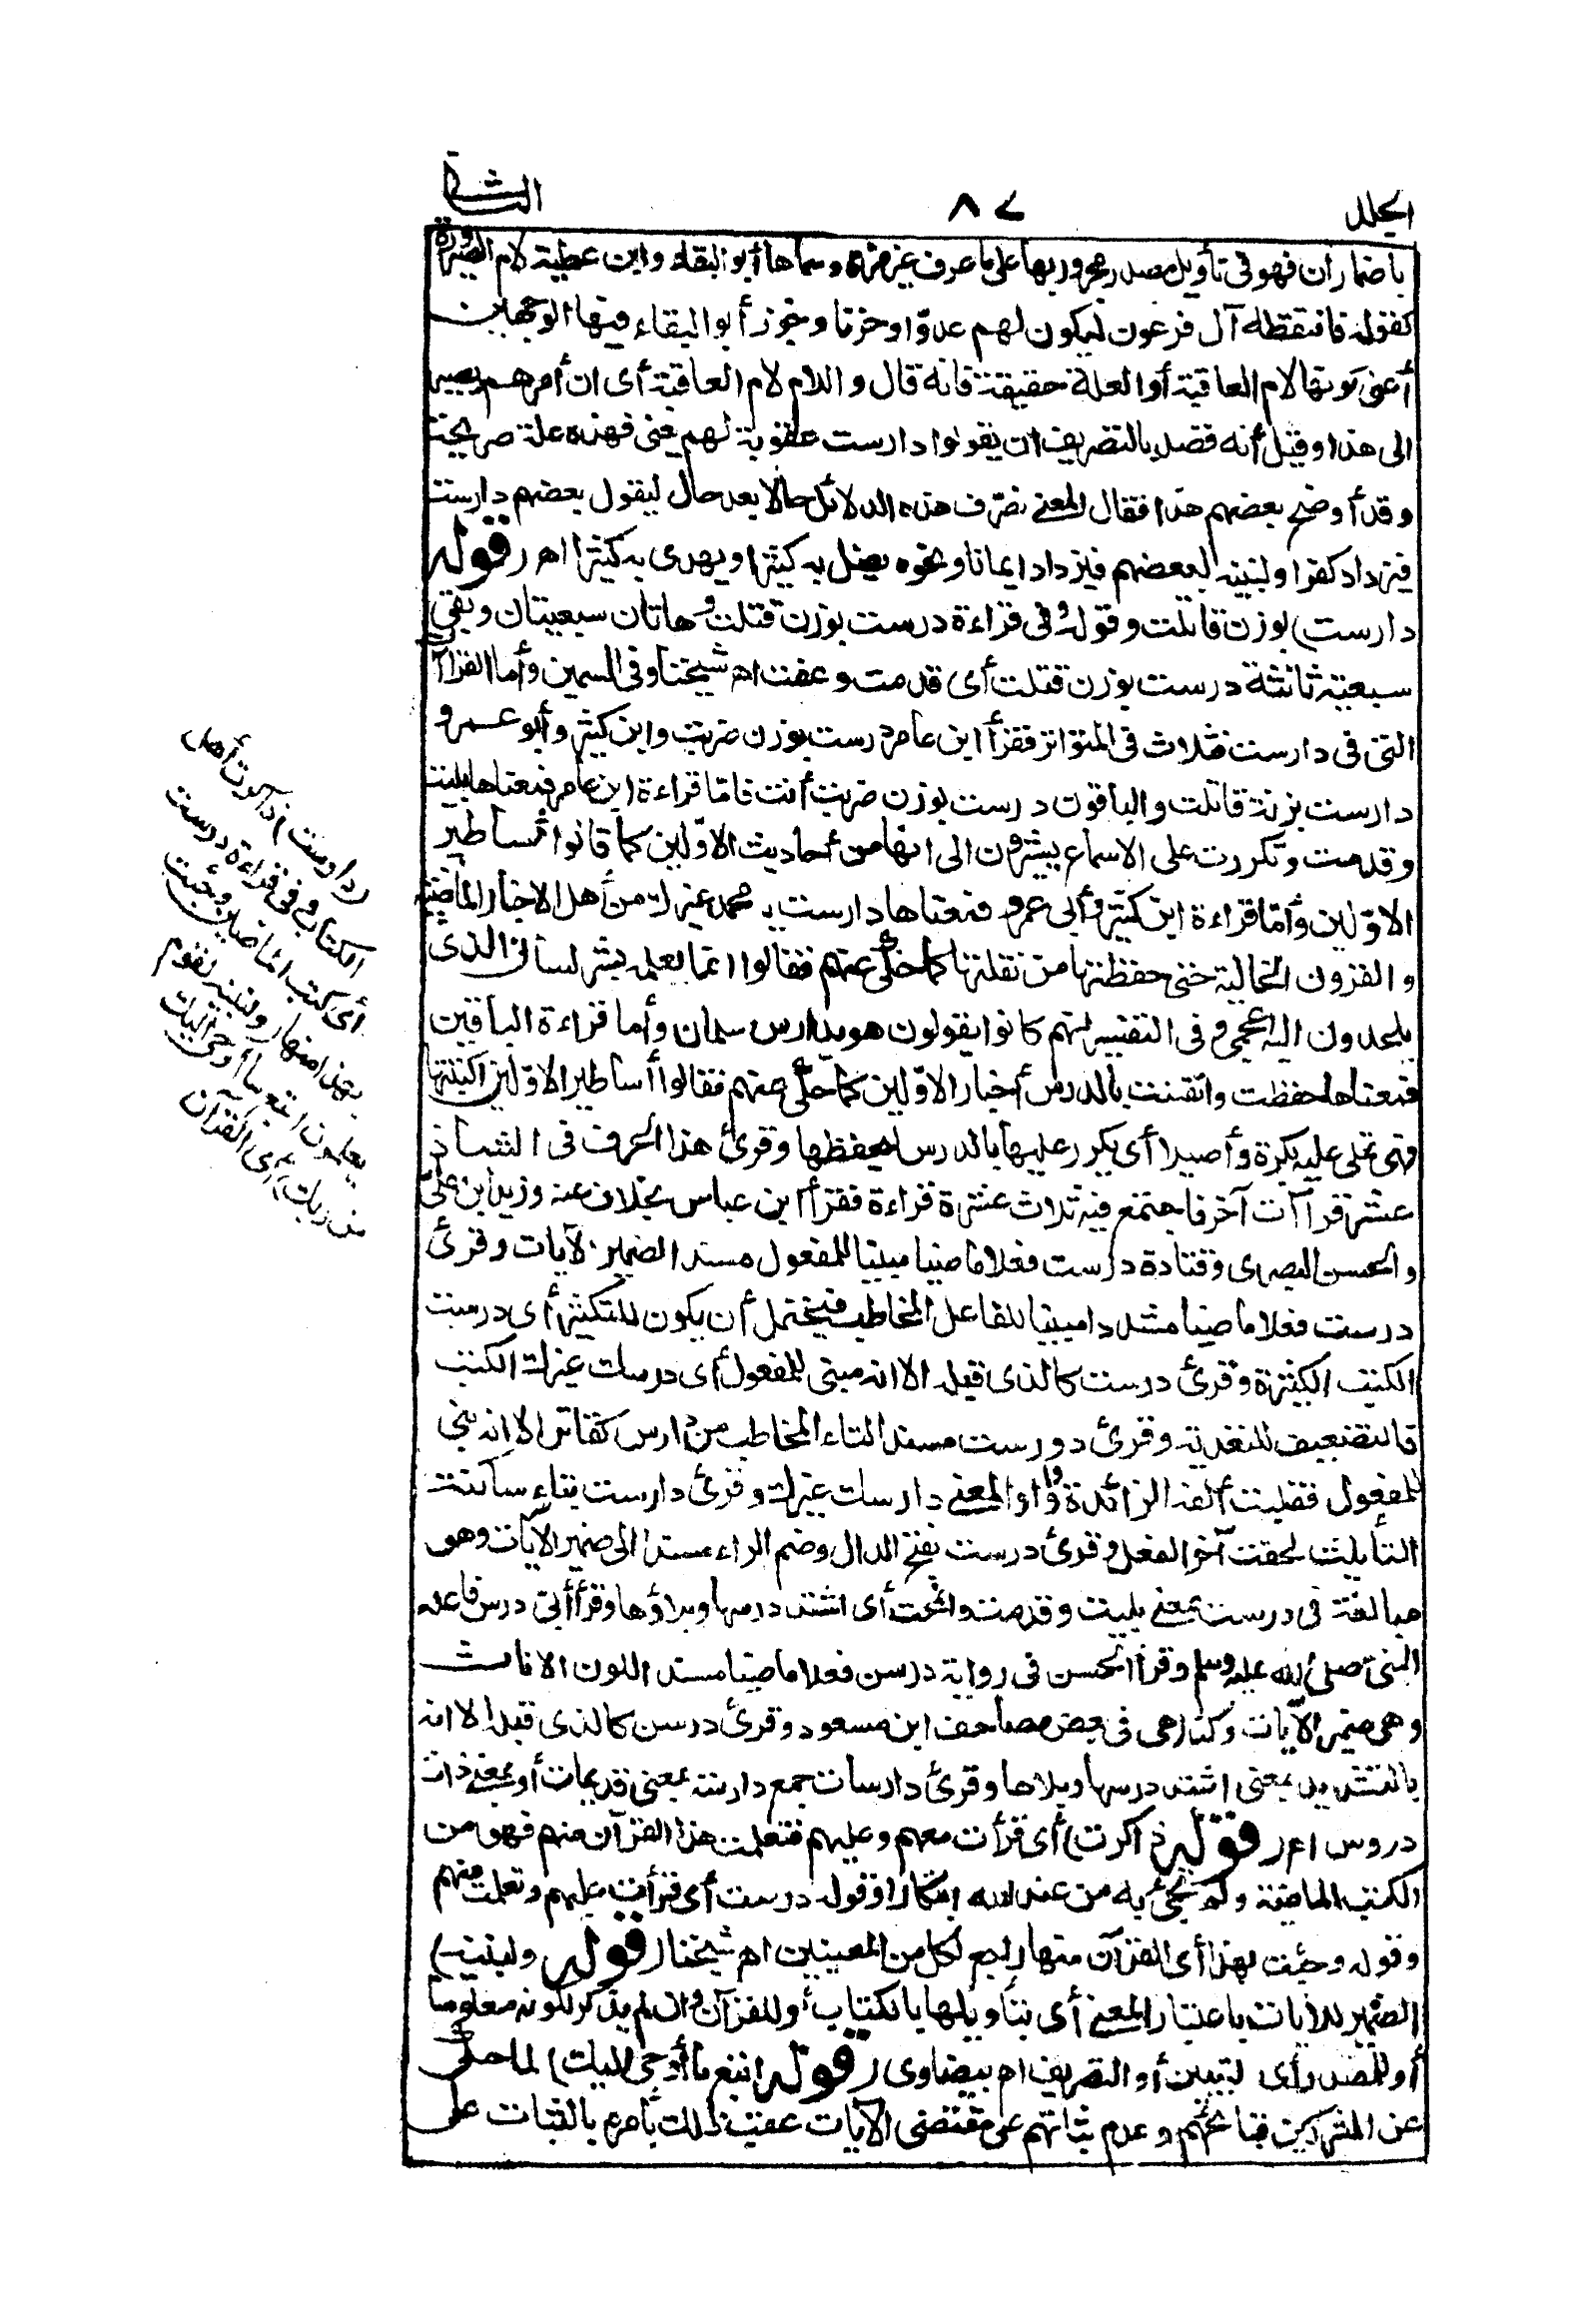 الجلد
٨٧
الثانى
باضمار ان فهو فى تأويل مصدر مجرور بها على ما عرف غير مرة وسماها أبو البقاء وابن عطية لام الصيرورة
كقوله فالتقطه آل فرعون ليكون لهم عدوّا وحزنا وجوز أبو البقاء فيها الوجهين
أعنى كونها لام العاقبة أو العلة حقيقة فانه قال واللام لام العاقبة أى ان أمرهم يصير
الى هذا وقيل أنه قصد بالتصريف ان يقولوا دارست عقوبة لهم يعنى فهذه علة صريحة
وقد أوضح بعضهم هذا فقال المعنى نصرّف هذه الدلائل حالا بعد حال ليقول بعضهم دارست
فيزداد كفرا ولنبينه لبعضهم فيزداد ايمانا ونحوه يضل به كثيرا ويهدى به كثيرا اهـ (قوله
دارست) بوزن قاتلت وقوله وفى قراءة درست بوزن قتلت وهاتان سبعيتان وبقى
سبعية ثالثة درست بوزن قتلت أى قدمت وعفت اهـ شيخنا وفى السمين وأما القراآت
التى فى دارست فثلاث فى المتواتر فقرأ ابن عامر درست بوزن ضربت وابن كثير وأبو عمرو
دارست بزنة قاتلت والباقون درست بوزن ضربت أنت فامّا قراءة ابن عامر فمعناها بليت
وقدمت وتكررت على الاسماع يشيرون الى انها من أحاديث الاوّلين كما قالوا أساطير
الاوّلين وأمّا قراءة ابن كثير وأبى عمرو فمعناها دارست يا محمد غيرك من أهل الاخبار الماضية
والقرون الخالية حتى حفظتها من نقلتها كما حكى عنهم فقالوا انما يعلمه بشر لسان الذى
يلحدون اليه أعجمى وفى التفسير انهم كانوا يقولون هو يدارس سلمان وأما قراءة الباقين
فمعناها حفظت وأتقنت بالدرس أخبار الاوّلين كما حكى عنهم فقالوا أساطير الاوّلين اكتتبها
فهى تملى عليه بكرة وأصيلا أى يكرر عليها بالدرس ليحفظها وقرئ هذا الحرف فى الشاذ
عشر قراآت آخر فاجتمع فيه ثلاث عشرة قراءة فقرأ ابن عباس بخلاف عنه وزيد ابن علىّ
والحسن البصرى وقتادة درست فعلا ماضيا مبنيا للمفعول مسند الضمير الآيات وقرئ
درست فعلا ماضيا مشددا مبنيا للفاعل المخاطب فيحتمل أن يكون للتكثير أى درست
الكتب الكثيرة وقرئ درست كالذى قبله الا انه مبنى للمفعول أى درسك غيرك الكتب
فالتضعيف للتعدية وقرئ دورست مسندا لتاء المخاطب من دارس كقاتل الا انه بنى
للمفعول فقلبت ألفه الزائدة واوا والمعنى دارسك غيرك وقرئ دارست بتاء ساكنة
التأنيث لحقت آخر الفعل وقرئ درست بفتح الدال وضم الراء مسندا الى ضمير الآيات وهو
مبالغة فى درست بمعنى بليت وقدمت وانمحت أى اشتد درسها وبلاؤها وقرأ أبىّ درس فاعله
النبى صلى الله عليه وسلم وقرأ الحسن فى رواية درسن فعلا ماضيا مسند النون الاناث
وهى ضمير الآيات وكذا هى فى بعض مصاحف ابن مسعود وقرئ درسن كالذى قبله الا انه
بالتشديد بمعنى اشتد درسها وبلاها وقرئ دارسات جمع دارسة بمعنى قديمات أو بمعنى ذات
دروس اهـ (قوله ذاكرت) أى قرأت معهم وعليهم فتعلمت هذا القرآن منهم فهو من
الكتب الماضية ولم يجئ به من عند الله ابتكارا وقوله درست أى قرأت عليهم وتعلمت منهم
وقوله وجئت بهذا أى القرآن منها راجع لكل من المعنيين اهـ شيخنا (قوله ولنبينه)
الضمير للآيات باعتبار المعنى أى بتأويلها بالكتاب أو للقرآن وان لم يذكر لكونه معلوما
أو للمصدر أى لتبيين أو التصريف اهـ بيضاوى (قوله اتبع ما أوحى اليك) لما حكى
عن المشركين قبائحهم وعدم ثباتهم على مقتضى الآيات عقب ذلك بأمره بالثبات على
(دارست) ذاكرت أهل
الكتاب وفى قراءة درست
أى كتب الماضين وجئت
بهذا منها (ولنبينه لقوم
يعلمون اتبع ما أوحى اليك
من ربك) أى القرآن